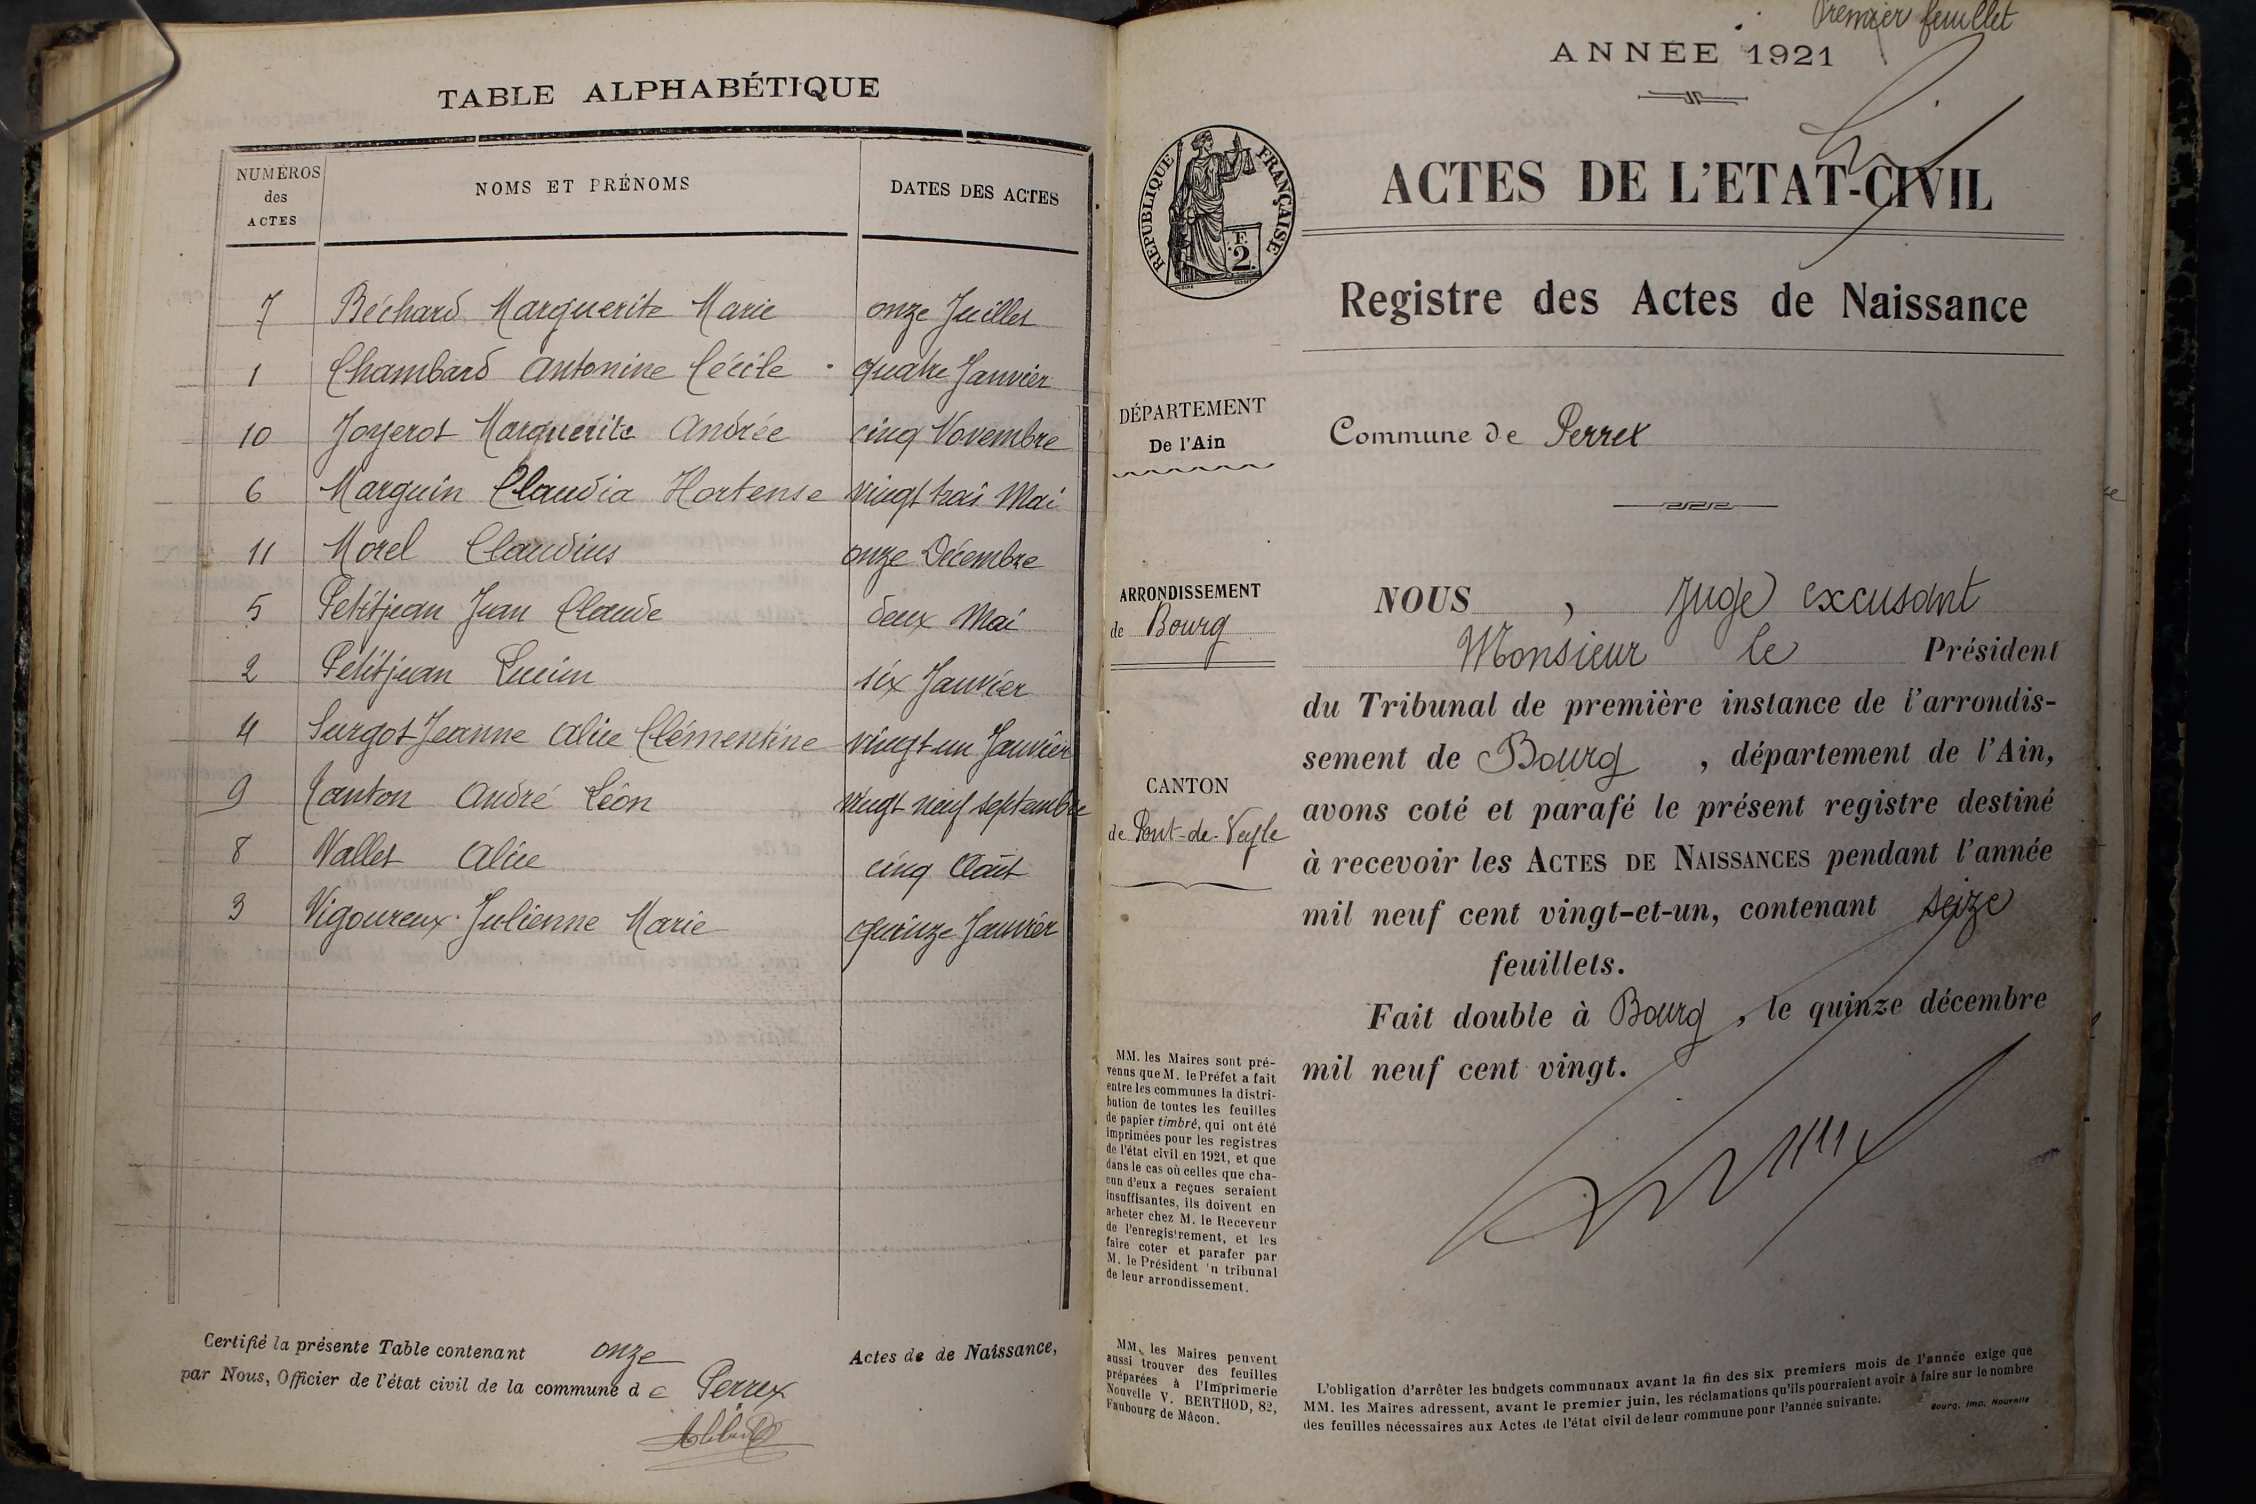 TABLE ALPHABÉTIQUE
NUMÉROS
des
ACTES
NOMS ET PRÉNOMS
DATES DES ACTES
7 Béchard Marguerite Marie onze Juillet
1 Chambard Antonine Cécile quatre Janvier
10 Joyerot Marguerite Andrée cinq Novembre
6 Marguin Claudia Hortense vingt trois Mai
11 Morel Claudius onze Décembre
5 Petitjean Jean Claude deux Mai
2 Petitjean Lucien six Janvier
4 Surgot Jeanne Alice Clémentine vingt-un Janvier
9 Tanton André Léon vingt neuf septembre
8 Vallet Alice cinq Août
3 Vigoureux Julienne Marie quinze Janvier
Certifié la présente Table contenant onze Actes de de Naissance,
par Nous, Officier de l'état civil de la commune de Perrex
Premier feuillet
ANNÉE 1921
RÉPUBLIQUE FRANÇAISE
F.
2
ACTES DE L'ETAT-CIVIL
Registre des Actes de Naissance
DÉPARTEMENT
De l'Ain
Commune de Perrex
ARRONDISSEMENT
de Bourg
CANTON
de Pont-de-Veyle
NOUS , Juge excusant
Monsieur le Président
du Tribunal de première instance de l'arrondis-
sement de Bourg , département de l'Ain,
avons coté et parafé le présent registre destiné
à recevoir les ACTES DE NAISSANCES pendant l'année
mil neuf cent vingt-et-un, contenant seize
feuillets.
Fait double à Bourg , le quinze décembre
mil neuf cent vingt.
MM. les Maires sont pré-
venus que M. le Préfet a fait
entre les communes la distri-
bution de toutes les feuilles
de papier timbré, qui ont été
imprimées pour les registres
de l'état civil en 1921, et que
dans le cas où celles que cha-
cun d'eux a reçues seraient
insuffisantes, ils doivent en
acheter chez M. le Receveur
de l'enregistrement, et les
faire coter et parafer par
M. le Président 'u tribunal
de leur arrondissement.
MM. les Maires peuvent
aussi trouver des feuilles
préparées à l'Imprimerie
Nouvelle V. BERTHOD, 82,
Faubourg de Mâcon.
L'obligation d'arrêter les budgets communaux avant la fin des six premiers mois de l'année exige que
MM. les Maires adressent, avant le premier juin, les réclamations qu'ils pourraient avoir à faire sur le nombre
des feuilles nécessaires aux Actes de l'état civil de leur commune pour l'année suivante.
Bourg, Imp. Nouvelle